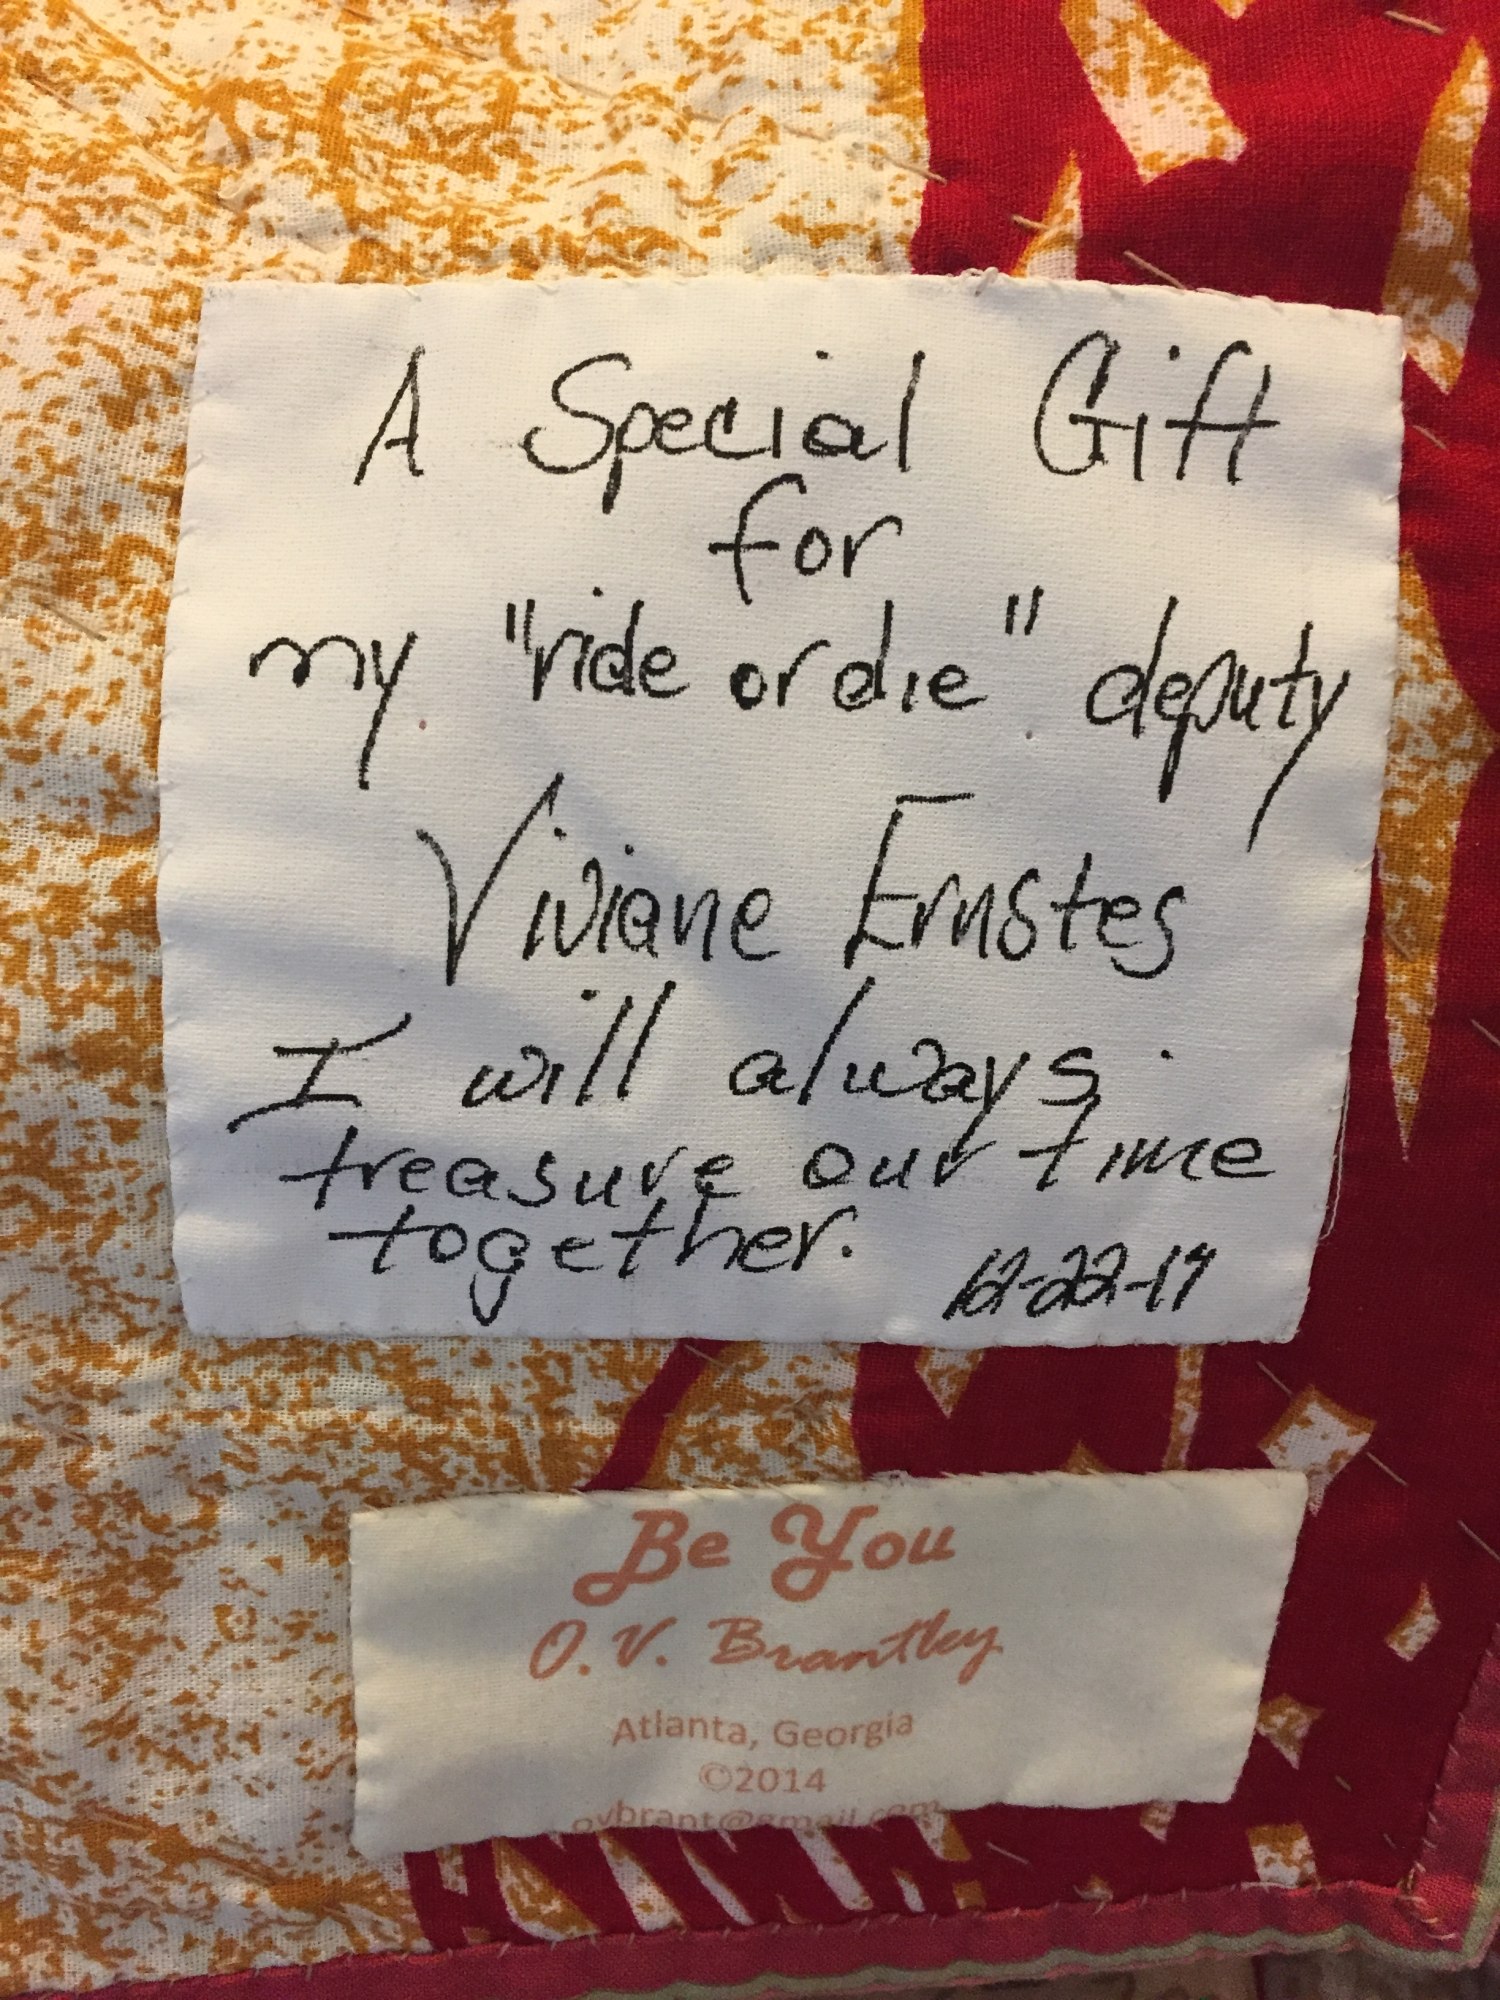 A Special Gift
for
my "ride or die" deputy
Viviane Ernstes
I will always
treasure our time
together. 12-22-19
Be You
O.V. Brantley
Atlanta, Georgia
©2014
ovbrant@gmail.com